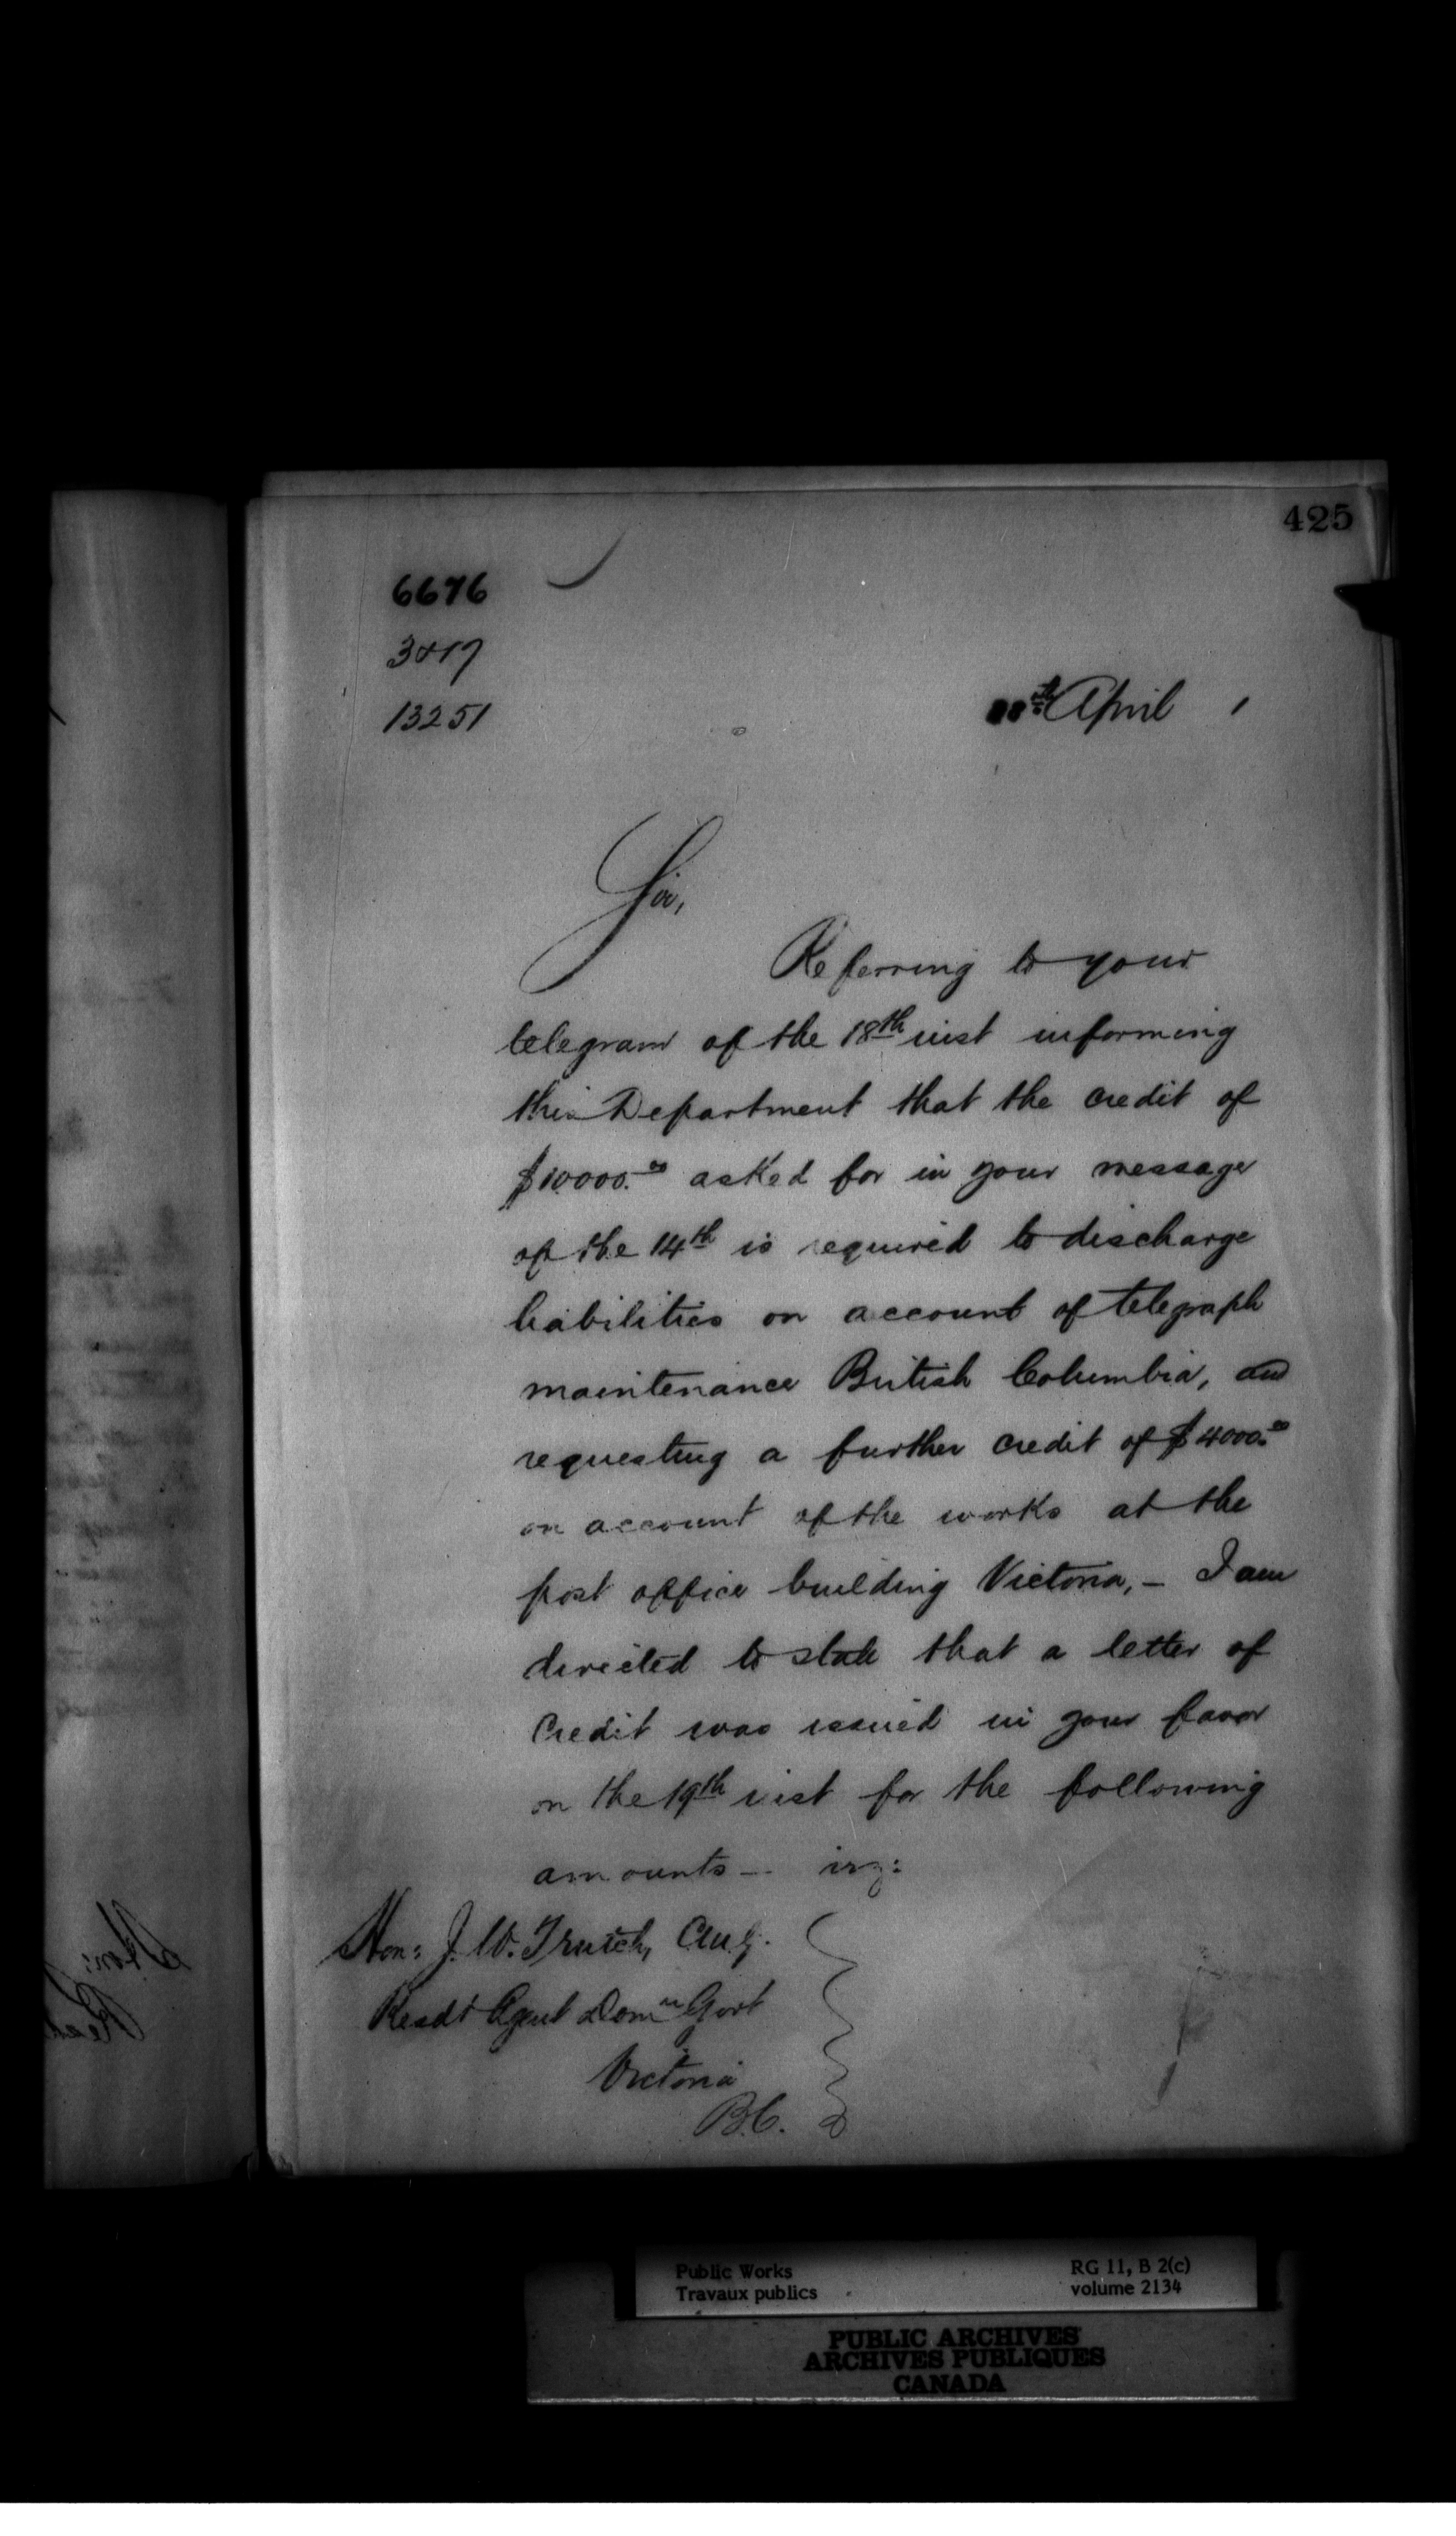 425
6676
13251
th April 1
Sir,
Referring to your
telegram of the 18th inst informing
this Department that the credit of
$10000.00 asked for in your message
of the 14th is required to discharge
liabilities on account of telegraph
maintenance British Columbia, and
requesting a further credit of $4000.00
on account of the works at the
post office building Victoria, – I am
directed to state that a letter of
Credit was issued in your favor
on the 19th inst for the following
amounts –
Hon: J. W. Trutch, CMG.
Resdt Agent Domn Govt
Victoria
B.C.
Public Works
Travaux publics
RG 11, B 2(c)
volume 2134
PUBLIC ARCHIVES
ARCHIVES PUBLIQUES
CANADA